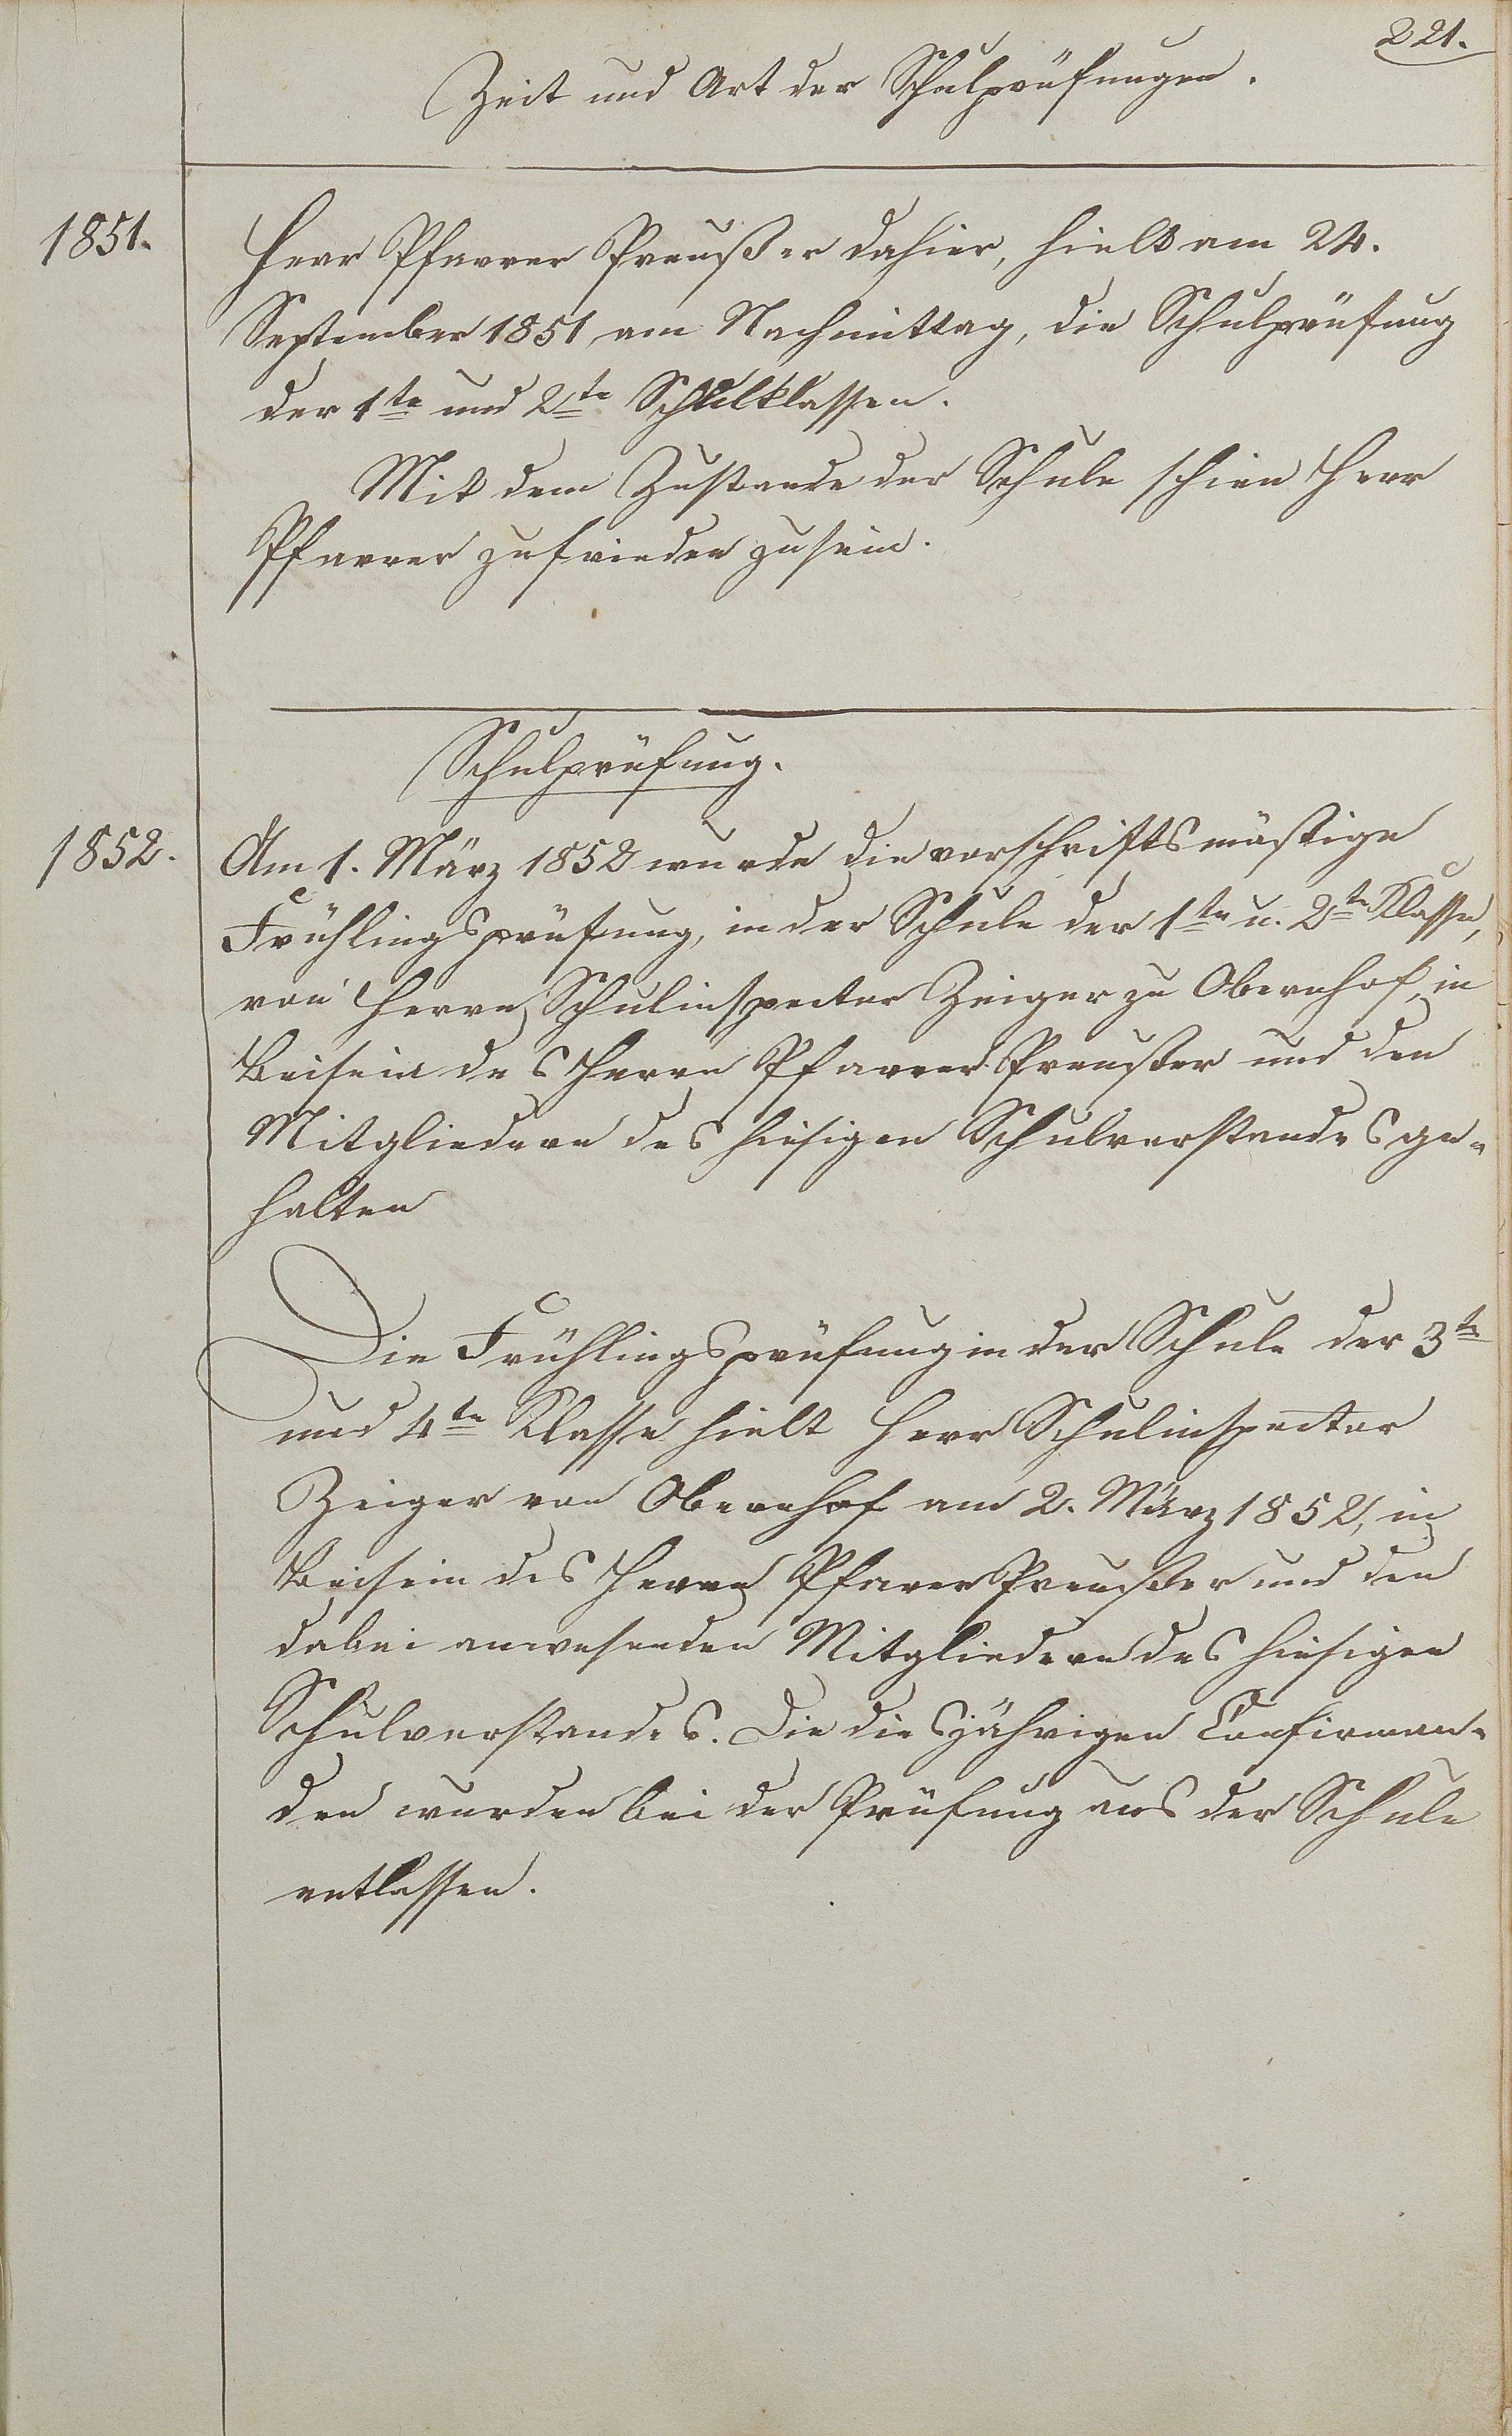 221.
Zeit und Art der Schulprüfungen.
1851.
Herr Pfarrer Preußer dahier, hielt am 24.
September 1851, am Nachmittag, die Schulprüfung
der 1te und 2te Schulklassen.
Mit dem Zustande der Schule schien Herr
Pfarrer zufrieden zu sein.
Schulprüfung.
1852.
Am 1. März 1852 wurde die vorschriftsmäßige
Frühlingsprüfung, in der Schule der 1te u. 2te Klasse,
von Herrn Schulinspector Zeiger zu Obernhof, in
Beisein des Herrn Pfarrer Preußer und den
Mitgliedern des hiesigen Schulvorstandes ge-
halten
Die Frühlingsprüfung in der Schule der 3te
und 4te Klasse hielt Herr Schulinspector
Zeiger von Obernhof am 2. März 1852, in
Beisein des Herrn Pfarrer Preußer und den
dabei anwesenden Mitgliedern des hiesigen
Schulvorstandes. Die diesjährigen Confirman-
den wurden bei der Prüfung aus der Schule
entlassen.